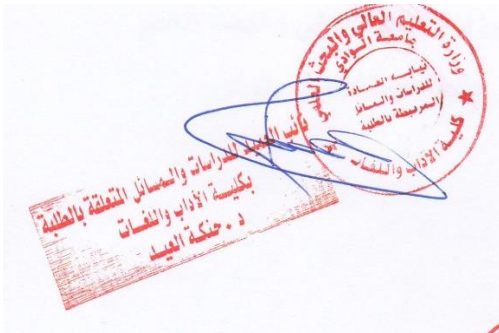 وزارة التعليم العالي والبحث العلمي
جامعة الوادي
نيابة العمادة
للدراسات والمسائل
المرتبطة بالطلبة
كلية الآداب واللغات
نائب العميد للدراسات والمسائل المتعلقة بالطلبة
بكلية الآداب واللغات
د. حنكة العيد